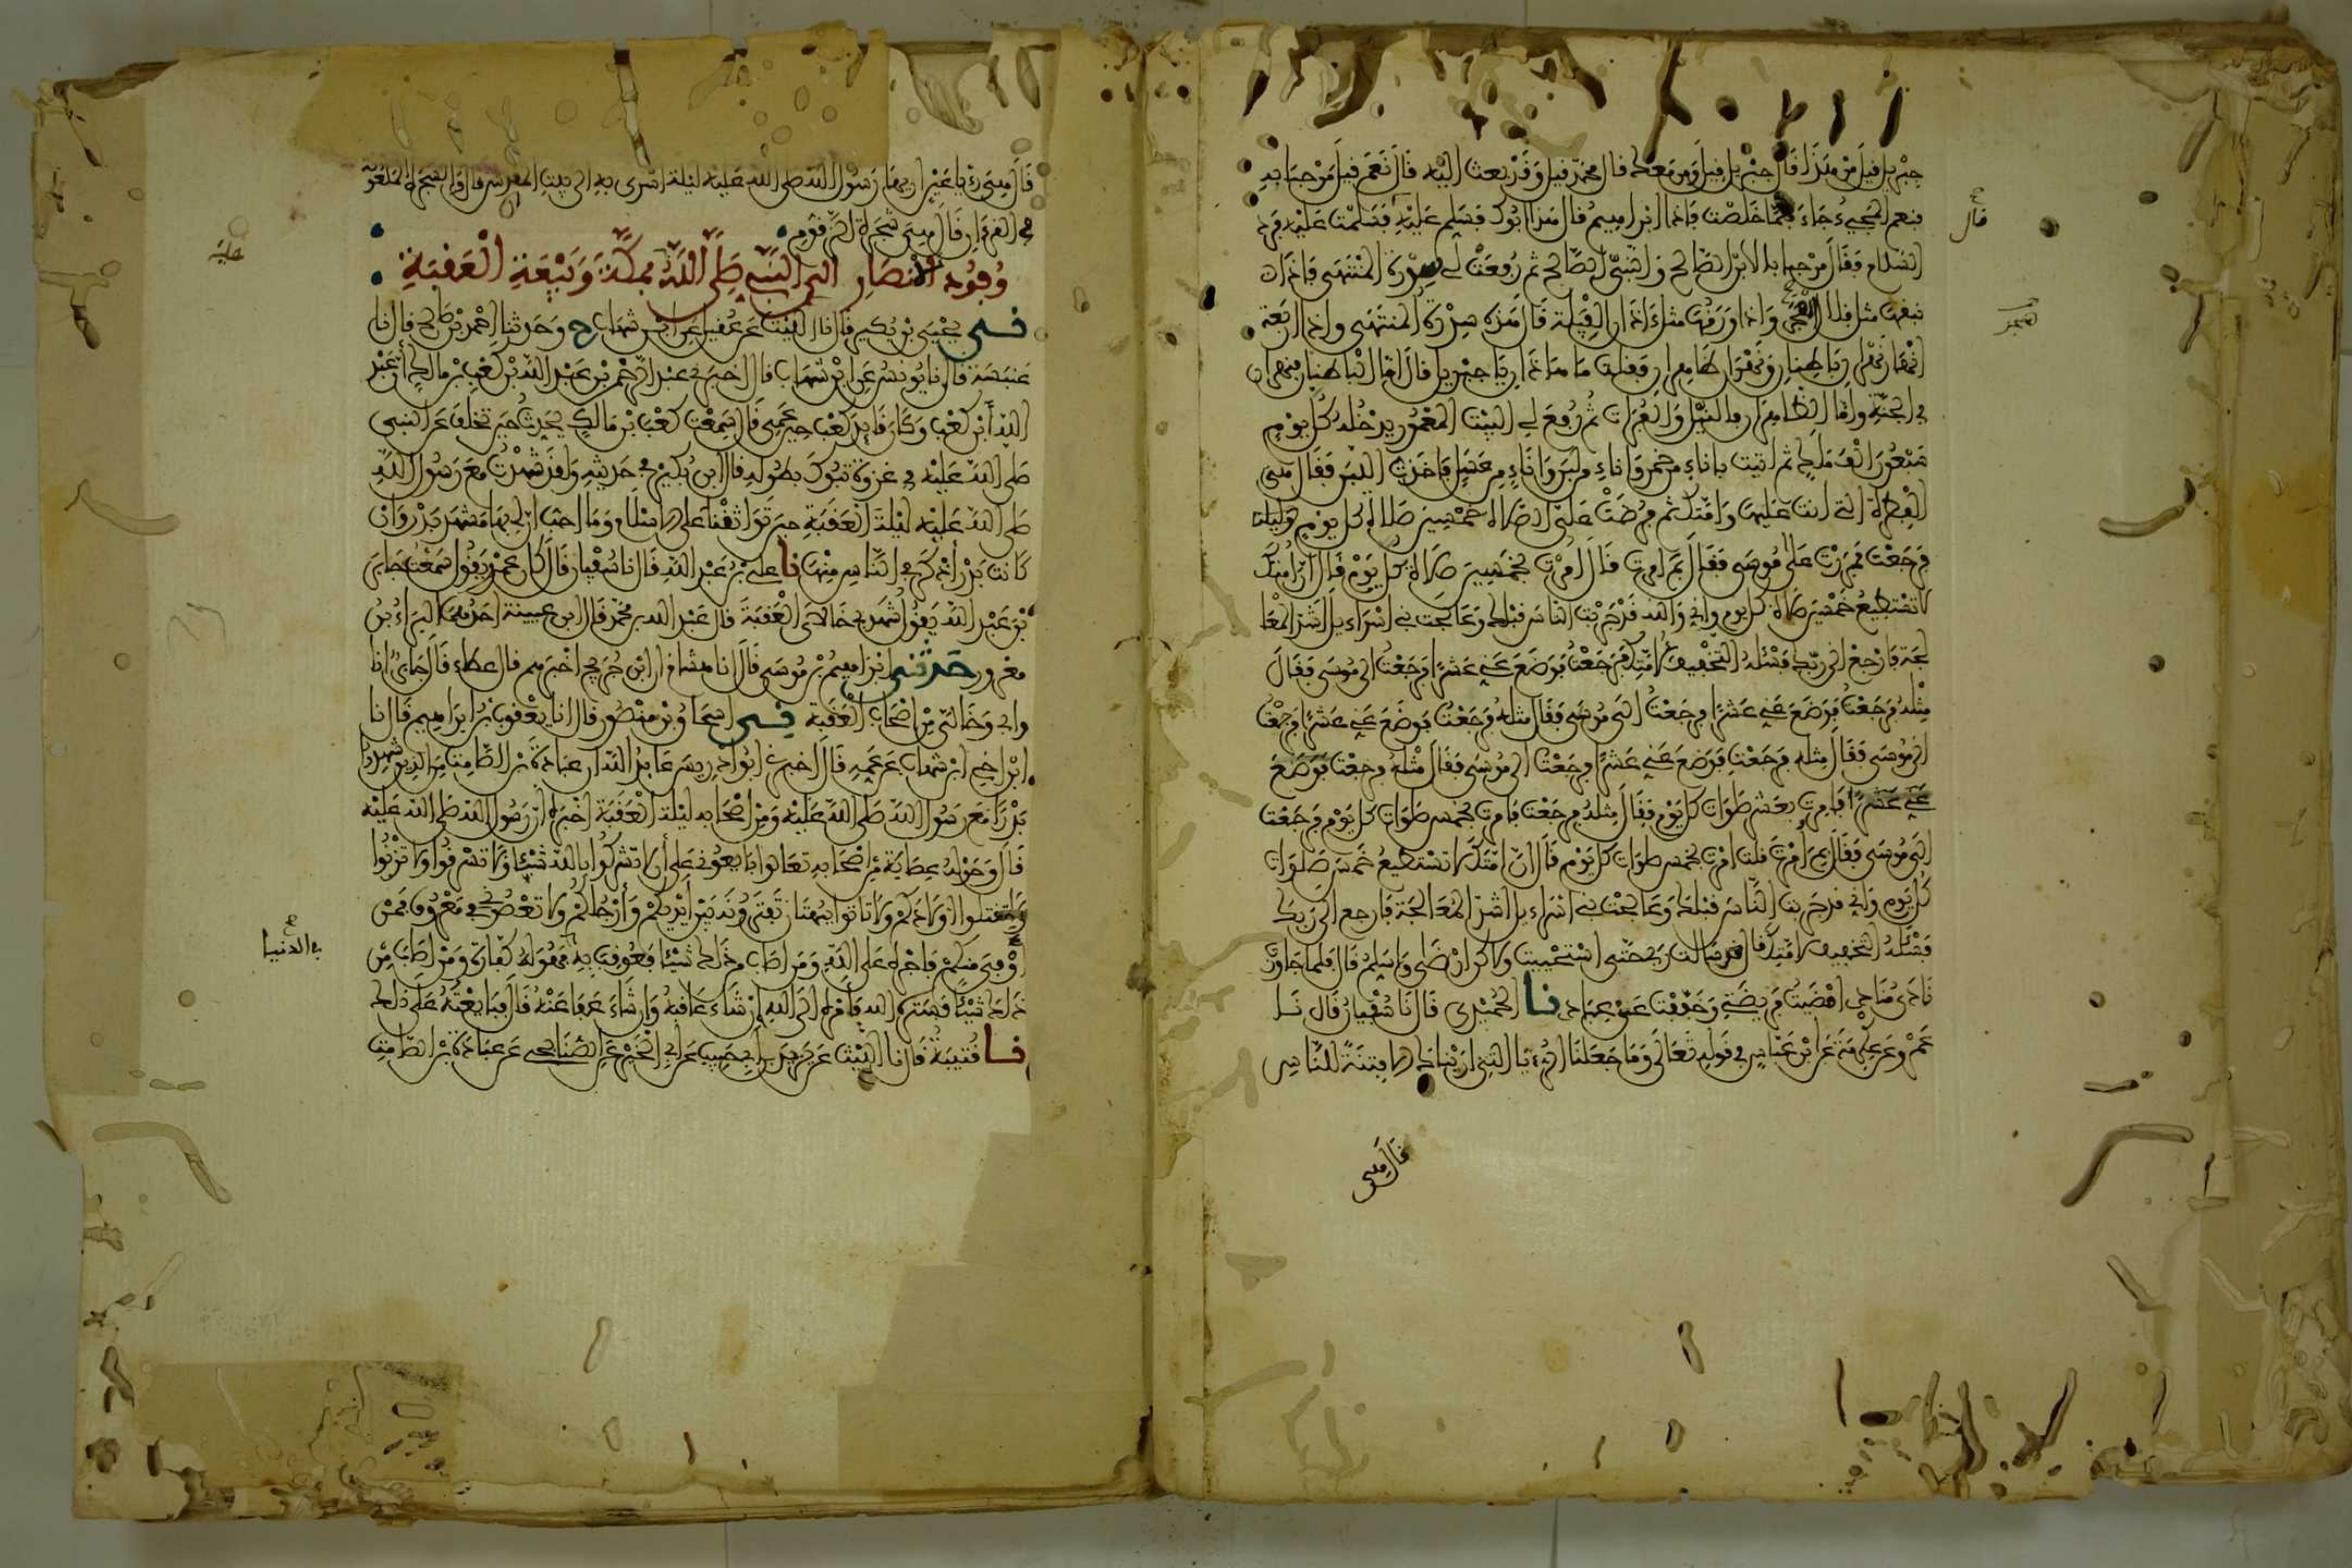 جبريل قيل من هذا قال جبريل قيل ومن معك قال محمد قيل وقد بعث اليه قال نعم قيل مرحبا به
فنعم المجيء جاء فلما خلصت فاذا ابرهيم قال هذا ابوك فسلم عليه فسلمت عليه فرد
قال
السلام فقال مرحبا بالابن الصالح والنبي الصالح ثم رفعت لي سدرة المنتهى فاذا
نبقها مثل قلال هجر واذا ورقها مثل اذان الفيلة قال هذه سدرة المنتهى واذا اربعة
هجر
انهار نهران باطنان ونهران ظاهران فقلت ما هذا يا جبريل قال اما الباطنان فنهران
في الجنة واما الظاهران فالنيل والفرات ثم رفع لي البيت المعمور يدخله كل يوم
سبعون الف ملك ثم اتيت باناء من خمر واناء من لبن واناء من عسل فاخذت اللبن فقال هي
الفطرة التي انت عليها وامتك ثم فرضت علي الصلاة خمسين صلاة كل يوم وليلة
فرجعت فمررت على موسى فقال بم امرت قال امرت بخمسين صلاة كل يوم قال ان امتك
لا تستطيع خمسين صلاة كل يوم واني والله قد جربت الناس قبلك وعالجت بني اسراءيل اشد المعا
لجة فارجع الى ربك فسئله التخفيف لامتك فرجعت فوضع عني عشرا فرجعت الى موسى فقال
مثله فرجعت فوضع عني عشرا فرجعت الى موسى فقال مثله فرجعت فوضع عني عشرا فرجعت
الى موسى فقال مثله فرجعت فوضع عني عشرا فرجعت الى موسى فقال مثله فرجعت فوضع
عني عشرا فامرت بعشر صلوات كل يوم فقال مثله فرجعت فامرت بخمس صلوات كل يوم فرجعت
الى موسى فقال بم امرت قلت امرت بخمس صلوات كل يوم قال ان امتك لا تستطيع خمس صلوات
كل يوم واني قد جربت الناس قبلك وعالجت بني اسراءيل اشد المعالجة فارجع الى ربك
فسئله التخفيف لامتك قال سالت ربي حتى استحييت ولاكن ارضى واسلم قال فلما جاوزت
نادى منادي امضيت فريضتي وخففت عن عبادي نا الحميدي قال نا سفيان قال نا
عمرو عن عكرمة عن ابن عباس في قوله تعالى وما جعلنا الرءيا التي اريناك الا فتنة للناس
قال هي
قال هي رءيا عين اريها رسول الله صلى الله عليه ليلة اسري به الى بيت المقدس قال والشجرة الملعونة
في القرءان قال هي شجرة الزقوم
وفود الانصار الى النبي صلى الله بمكة وبيعة العقبة
عليه
ني يحيى بن بكير قال نا الليث عن عقيل عن ابن شهاب ح وحدثنا احمد بن صالح قال نا
عنبسة قال نا يونس عن ابن شهاب قال اخبرني عبد الرحمن بن عبد الله بن كعب بن مالك ان عبد
الله ابن كعب وكان قايد كعب حين عمي قال سمعت كعب بن مالك يحدث حين تخلف عن النبي
صلى الله عليه في غزوة تبوك بطوله قال ابن بكير في حديثه ولقد شهدت مع رسول الله
صلى الله عليه ليلة العقبة حين تواثقنا على الاسلام وما احب ان لي بها مشهد بدر وان
كانت بدر اذكر في الناس منها نا علي بن عبد الله قال نا سفيان قال كان عمرو يقول سمعت جابر
بن عبد الله يقول شهد بي خالاي العقبة قال عبد الله بن محمد قال ابن عيينة احدهما البراء بن
معرور حدثني ابراهيم بن موسى قال انا هشام ان ابن جريج اخبرهم قال عطاء قال جابر انا
وابي وخالي من اصحاب العقبة ني اسحاق بن منصور قال انا يعقوب بن ابراهيم قال نا
ابن اخي ابن شهاب عن عمه قال اخبرني ابو ادريس عايذ الله ان عبادة بن الصامت من الذين شهدوا
بدرا مع رسول الله صلى الله عليه ومن اصحابه ليلة العقبة اخبره ان رسول الله صلى الله عليه
قال وحوله عصابة من اصحابه تعالوا بايعوني على ان لا تشركوا بالله شيئا ولا تسرقوا ولا تزنوا
ولا تقتلوا اولادكم ولا تاتوا ببهتان تفترونه بين ايديكم وارجلكم ولا تعصوني في معروف فمن
وفى منكم فاجره على الله ومن اصاب من ذلك شيئا فعوقب به فهو له كفارة ومن اصاب من
في الدنيا
ذلك شيئا فستره الله فامره الى الله ان شاء عاقبه وان شاء عفا عنه قال فبايعته على ذلك
نا قتيبة قال نا الليث عن يزيد بن ابي حبيب عن ابي الخير عن الصنابحي عن عبادة بن الصامت